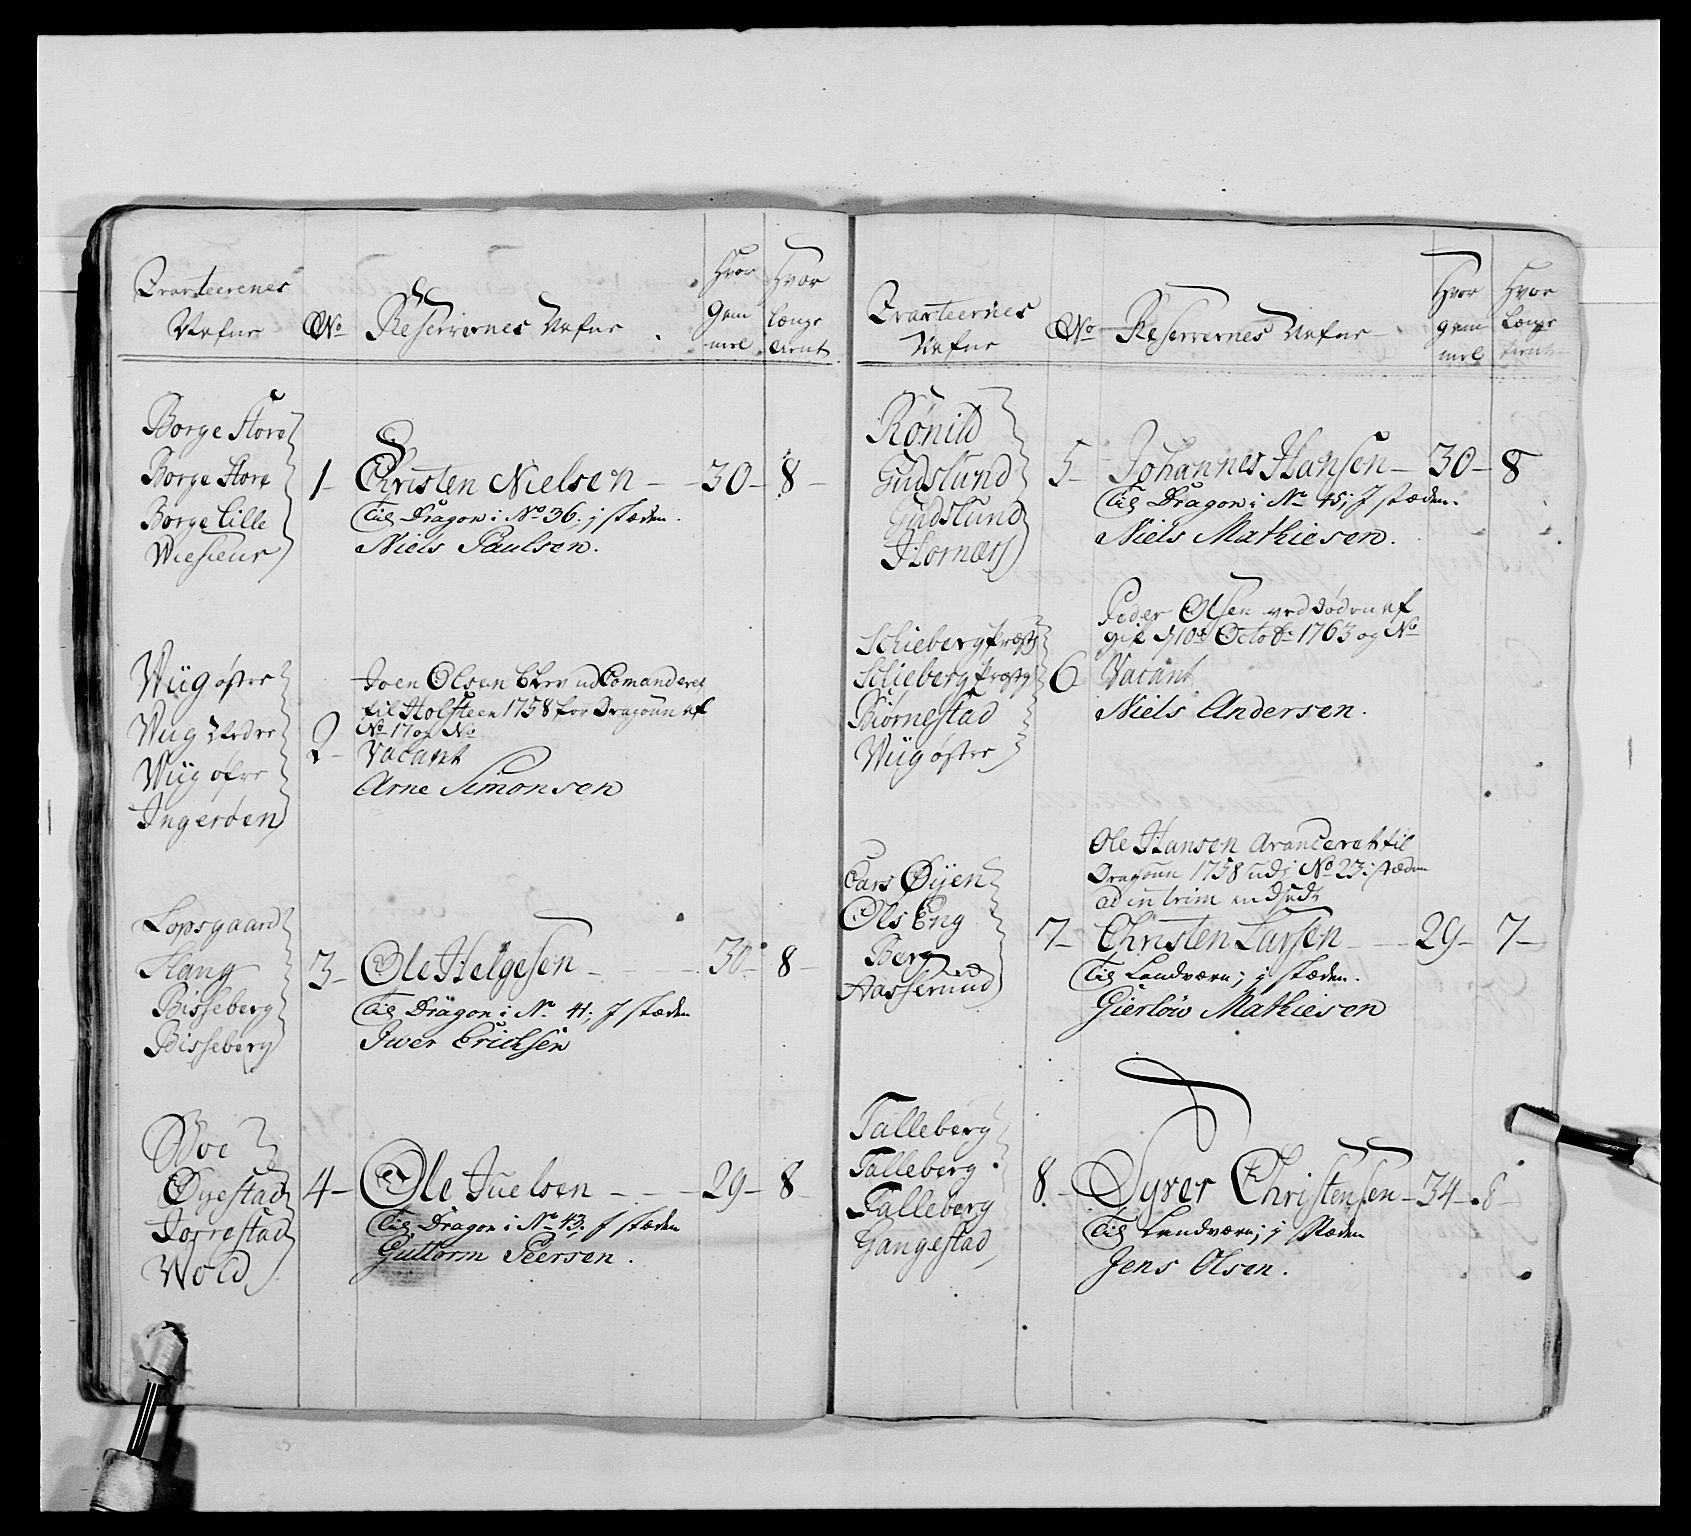 Qvarteerenes
Nafne
No
Reservernes Nafne
Hvor
Gam
mel
Hvor
længe
tient
Borge Store
Borge Store
Borge Lille
Wiesieur
1
Christen Nielsen
30
8
Til Dragon i No 36. j stæden
Niels Paulsen.
Wiig østre
Wiig Nedre
Wiig øfre
Ingerøen
2
Joen Olsen blev ud Comanderet
til Holsteen 1758 for Dragoun af
No 17 og No
Vacant
Arne Simonsen
Lopsgaard
Slang
Bisseberg
Bisseberg
3
Ole Helgesen
30
8
Til Dragon i No 41; J stæden
Iwer Erichsen
Boe
Øyestad
Jorrestad
Wold
4
Ole Juelsen
29
8
Til Dragon i No 43; J stæden
Guttorm Peersen.
Qvarteernes
Nafne
No
Reservernes Nafne
Hvor
gam
mel
Hvor
længe
tient
Rønild
Gudslund
Gudslund
Hornæs
5
Johannes Hansen
30
8
Til Dragon i No 45; J stæden.
Niels Mathiesen.
Schieberg Præstg
Schieberg Præstg
Biørnestad
Wiig østre
6
Peder Olsen ved døden af
gik d 10de Octobr 1763 og No
Vacant
Niels Andersen.
Lars Øijen
Ols Eng
Berg
Aasserud
7
Ole Hansen Avancerat til
Dragoun 1758 udj No 23 i stæden
ad intrim indsadt
Christen Larsen
29
7
Til Landværn; j stæden.
Gierlöw Mathiesen
Talleberg
Talleberg
Talleberg
Gangestad
8.
Syver Christensen
34
8
Til Landværn; j stæden
Jens Olsen.